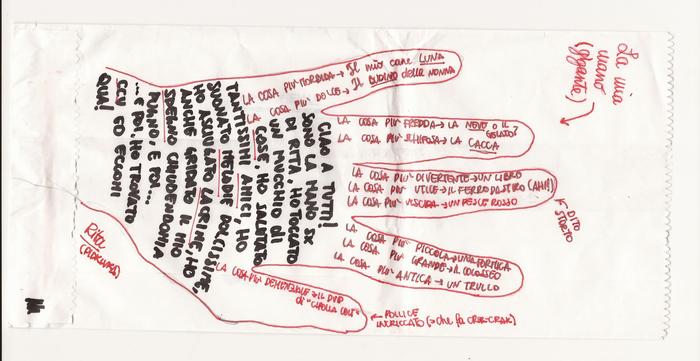 La mia
mano
(gigante)
LA COSA PIÙ MORBIDA → Il mio cane LUNA
LA COSA PIÙ DOLCE → Il BUDINO della NONNA
LA COSA PIÙ FREDDA → LA NEVE O IL
GELATO
LA COSA PIÙ SCHIFOSA → LA CACCA
LA COSA PIÙ DIVERTENTE → UN LIBRO
LA COSA PIÙ UTILE → IL FERRO DA STIRO (AHI!)
LA COSA PIÙ VISCIDA → UN PESCE ROSSO
← DITO
STORTO
LA COSA PIÙ PICCOLA → UNA FORMICA
LA COSA PIÙ GRANDE → IL COLOSSEO
LA COSA PIÙ ANTICA → UN TRULLO
LA COSA PIÙ DEMENZIALE → IL DVD
di "CIPOLLA COLT"
← POLLICE
INCRICCATO (→ che fa CRIK-CRAK)
CIAO A TUTTI!
SONO LA MANO SX
DI RITA, HO TOCCATO
UN MUCCHIO DI
COSE, HO SALUTATO
TANTISSIMI AMICI, HO
SUONATO MELODIE DOLCISSIME,
HO ASCIUGATO LACRIME, HO
ANCHE GRIDATO IL MIO
SDEGNO CHIUDENDOMI A
PUGNO, E POI...
... E POI, HO TROVATO
ECCO ED ECCOMI
QUA!
Rita